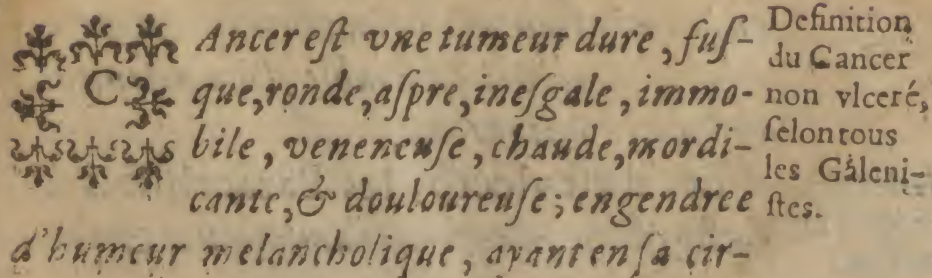 CAncer eſt vne tumeur dure, fuſ-
que, ronde, aſpre, ineſgale, immo-
bile, veneneuſe, chaude, mordi-
cante, & douloureuſe; engendree
d'humeur melancholique, ayant en ſa cir-
Definition
du Cancer
non vlceré,
ſelon tous
les Galeni-
ſtes.